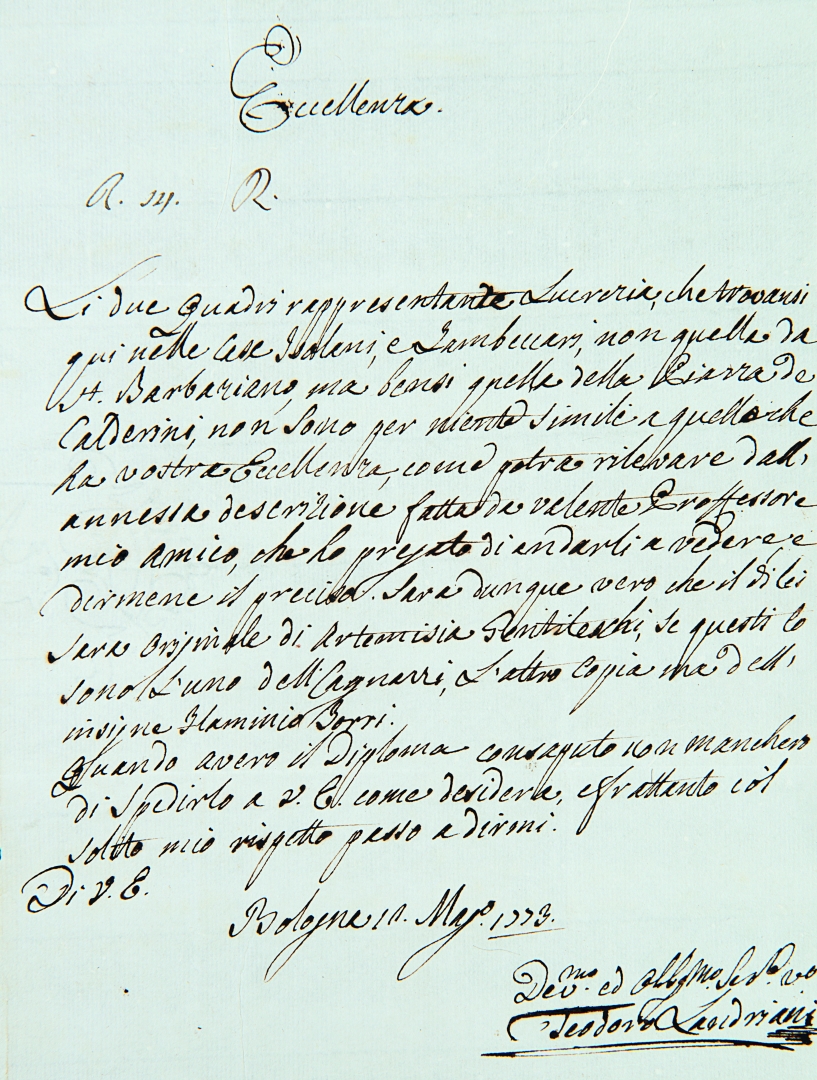 Eccellenza.
R. 14. R.
Li due Quadri rappresentante Lucrezia, che trovansi
qui nelle Case Isolani, e Zambeccari, non quella da
St. Barbaziano, ma bensi quella della Piazza de
Calderini, non sono per niente simili a quello che
ha vostra Eccellenza, come potra rilevare dall'
annessa descrizione fatta da valente Proffessore
mio Amico, che ho pregato di andarli a vedere, e
dirmene il preciso. Sara dunque vero che il di lei
sara originale di Artemisia Gentileschi, se questi lo
sono L'uno dell Cagnazzi, L'altro Copia ma dell'
insigne Flaminio Torri.
Quando avero il Diploma consaputo non manchero
di spedirlo a V. E. come desidera, e frattanto col
solito mio rispetto passo a dirmi.
Di V. E.
Bologna 12. Mago. 1773.
Devmo. ed Obbgmo. Serre. vo
Teodoro Landriani